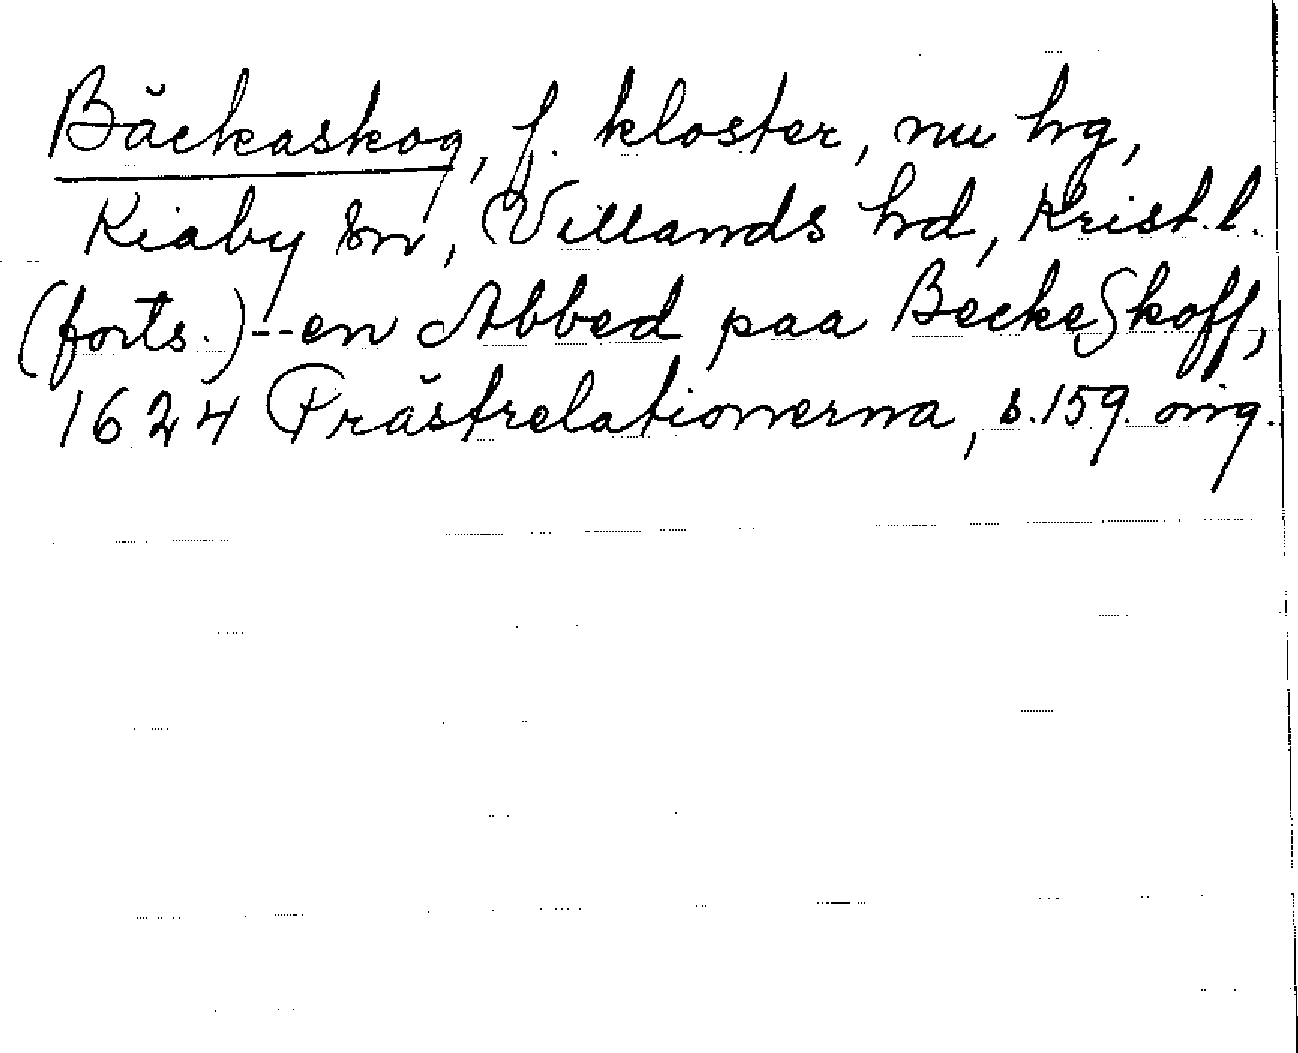 Bäckaskog, f. kloster, nu hg,
Kiaby sn, Villands hd, Krist. l.
(forts.) -- en Abbed paa BeckeSkoff,
1624 Prästrelationerna, s. 159. orig.